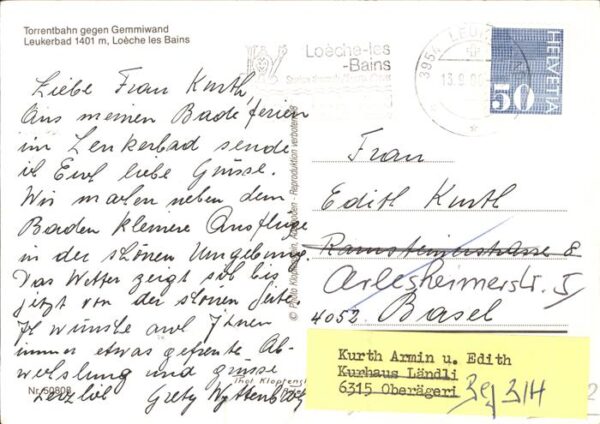 Torrentbahn gegen Gemmiwand
Leukerbad 1401 m, Loèche les Bains
Loèche-les
-Bains
3954 LEUK
13.9.
HELVETIA
50
Liebe Frau Kurth,
Aus meinen Badeferien
im Leukerbad sende
ich Euch liebe Grüsse.
Wir machen neben dem
Baden kleinere Ausflüge
in der schönen Umgebung.
Das Wetter zeigt sich bis
jetzt von der schönen Seite.
Ich wünsche auch Ihnen
immer etwas gefreute Ab-
wechslung und grüsse
herzlich Grety Wyttenbach
Nr. 50808
Reproduktion verboten
Frau
Edith Kurth
Ramsteinerstrasse 8
Arlesheimerstr. 5
4052 Basel
Kurth Armin u. Edith
Kurhaus Ländli
6315 Oberägeri